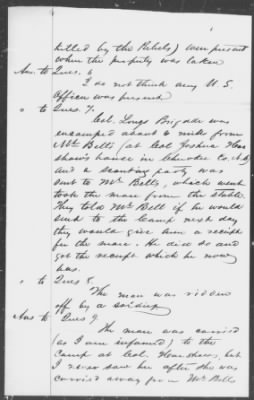 killed by the Rebels) were present
when the property was taken
Ans to Ques. 6
I do not think any U.S.
Officer was present
" to Ques. 7.
Col. Longs Brigade was
encamped about 6 miles from
Mr Bells (at Col Joshua Hear
shaw's house in Cherokee Co. Ala)
and a scouting party was
sent to Mr Bells, which went
took the mare from the stable.
They told Mr Bell if he would
send to the Camp next day
they would give him a receipt
for the mare. He did so and
got the receipt which he now
has.
" to Ques 8.
The mare was ridden
off by a soldier
Ans to Ques 9
The mare was carried
(as I am informed) to the
Camp at Col. Hearshaws, but
I never saw her after she was
carried away from Mr Bells